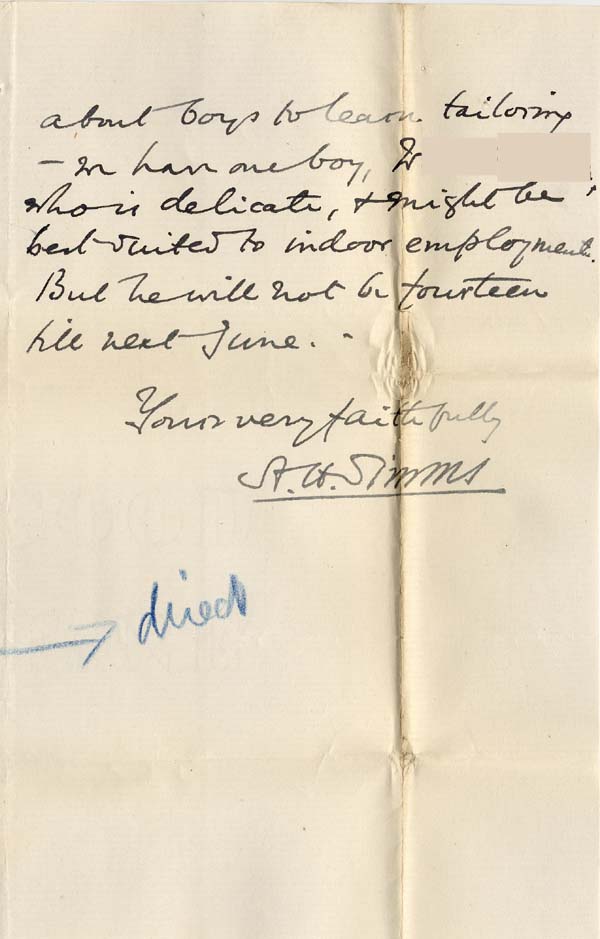 about boys to learn tailoring
- we have one boy, W
who is delicate, & might be
best suited to indoor employment.
But he will not be fourteen
till next June. -
Yours very faithfully
A. H. Simms
direct